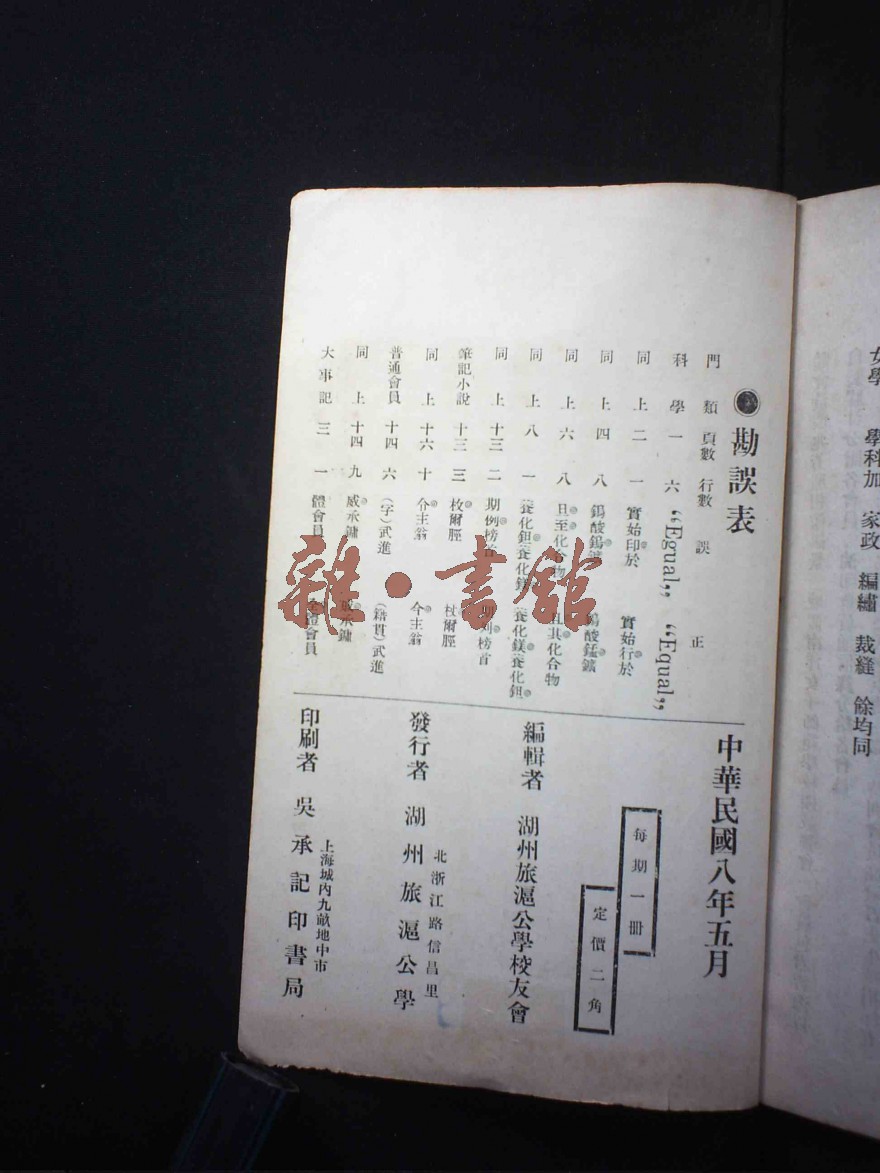 女學 學科加 家政 編繡 裁縫 餘均同
勘誤表
門類 頁數 行數 誤 正
科學 一 六 “Egual„ “Equal„
同上 二 一 實始印於 實始行於
同上 四 八 錫酸錫鑛 錫酸錳鑛
同上 六 八 且至化合物 且其化合物
同上 八 一 養化鉭養化鎂 養化鎂養化鉭
同上 十三 二 期例榜首 期列榜首
筆記小說 十三 三 枚爾脛 杖爾脛
同上 十六 十 今主翁 今主翁
普通會員 十四 六 (字)武進 (籍貫)武進
同上 十四 九 威承鏞 戚承鏞
大事記 三 一 體會員 全體會員
中華民國八年五月
每期一冊
定價二角
編輯者 湖州旅滬公學校友會
北浙江路信昌里
發行者 湖州旅滬公學
上海城內九畝地中市
印刷者 吳承記印書局
雜·書館